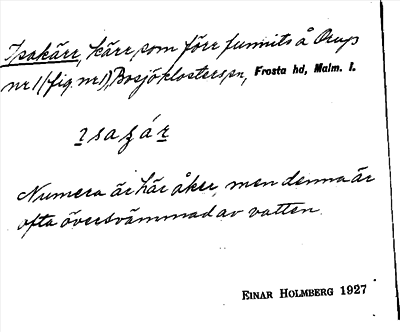 Isakärr, kärr, som förr funnits å Orup
nr 1 (fig. nr 1), Bosjöklosters sn, Frosta hd, Malm. l.
ɩsaʒár
Numera är här åker, men denna är
ofta översvämmad av vatten.
EINAR HOLMBERG 1927